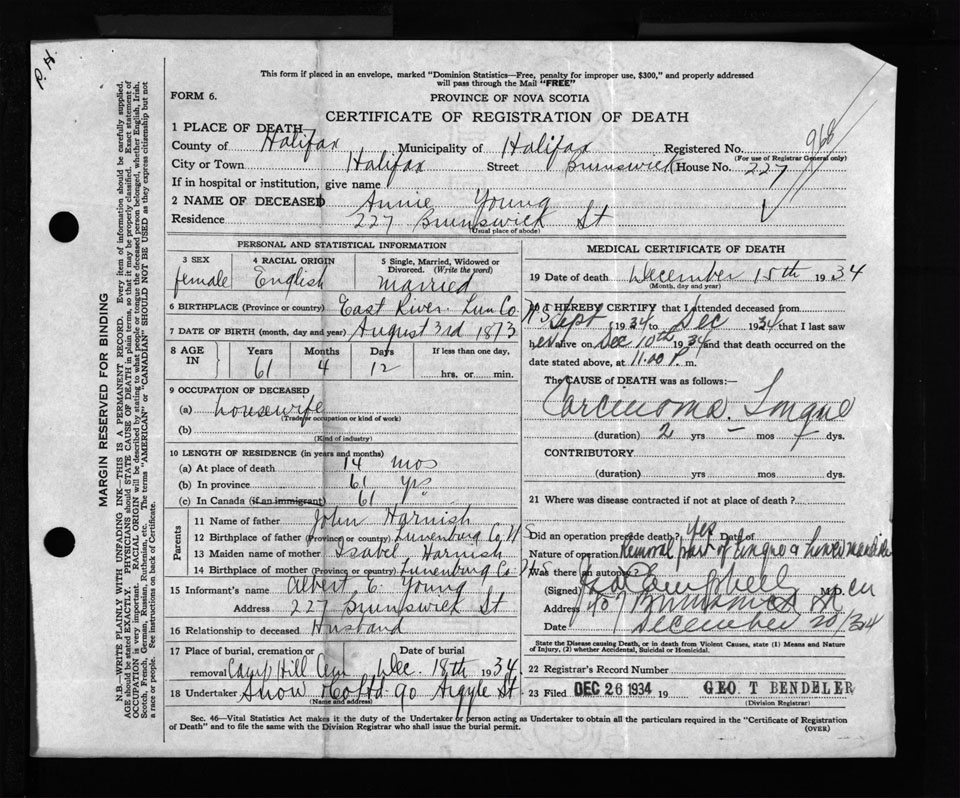 P. H.
This form if placed in an envelope, marked "Dominion Statistics—Free, penalty for improper use, $300," and properly addressed
will pass through the Mail "FREE"
FORM 6.
PROVINCE OF NOVA SCOTIA
CERTIFICATE OF REGISTRATION OF DEATH
968
1 PLACE OF DEATH—
County of Halifax Municipality of Halifax Registered No.
(For use of Registrar General only)
City or Town Halifax Street Brunswick House No. 227
If in hospital or institution, give name
2 NAME OF DECEASED Annie Young
Residence 227 Brunswick St
(Usual place of abode)
PERSONAL AND STATISTICAL INFORMATION
3 SEX female
4 RACIAL ORIGIN English
5 Single, Married, Widowed or Divorced. (Write the word) Married
6 BIRTHPLACE (Province or country) East River. Lun Co. N S
7 DATE OF BIRTH (month, day and year) August 3rd 1873
8 AGE IN Years 61 Months 4 Days 12 If less than one day, hrs. or min.
9 OCCUPATION OF DECEASED
(a) housewife
(Trade occupation or kind of work)
(b)
(Kind of industry)
10 LENGTH OF RESIDENCE (in years and months)
(a) At place of death 14 mos
(b) In province 61 yrs
(c) In Canada (if an immigrant) 61 "
Parents
11 Name of father John Harnish
12 Birthplace of father (Province or country) Lunenburg Co. N S
13 Maiden name of mother Isabel Harnish
14 Birthplace of mother (Province or country) Lunenburg Co. N S
15 Informant's name Albert E. Young
Address 227 Brunswick St
16 Relationship to deceased Husband
17 Place of burial, cremation or removal Camp Hill Cem Date of burial Dec. 18th 1934
18 Undertaker Snow Co Ltd 90 Argyle St.
(Name and address)
MEDICAL CERTIFICATE OF DEATH
19 Date of death December 15th 1934
(Month, day and year)
20 I HEREBY CERTIFY that I attended deceased from
Sept 1934 to Dec 1934 that I last saw
her alive on Dec 10th 1934 and that death occurred on the
date stated above, at 11.00 P. m.
The CAUSE of DEATH was as follows:—
Carcinoma. Tongue
(duration) 2 yrs — mos — dys.
CONTRIBUTORY
(duration) yrs. mos. dys.
21 Where was disease contracted if not at place of death?
Did an operation precede death? yes Date of
Nature of operation Removal part of tongue & lower mandible
Was there an autopsy?
(Signed) Campbell M.D. CM
Address 407 Brunswick St
Date December 20/34
State the Disease causing Death, or in death from Violent Causes, state (1) Means and
Nature of Injury, (2) whether Accidental, Suicidal or Homicidal.
22 Registrar's Record Number
23 Filed DEC 26 1934 19 GEO. T BENDELER
(Division Registrar)
Sec. 46—Vital Statistics Act makes it the duty of the Undertaker or person acting as Undertaker to obtain all the particulars required in the "Certificate of Registration
of Death" and to file the same with the Division Registrar who shall issue the burial permit.
(OVER)
MARGIN RESERVED FOR BINDING
N.B.—WRITE PLAINLY WITH UNFADING INK—THIS IS A PERMANENT RECORD. Every item of information should be carefully supplied.
AGE should be stated EXACTLY. PHYSICIANS should STATE CAUSE OF DEATH in plain terms, so that it may be properly classified. Exact statement of
OCCUPATION is very important. RACIAL ORIGIN will be described by stating to what people or tongue the deceased person belonged, whether English, Irish,
Scotch, French, German, Russian, Ruthenian, etc. The terms "AMERICAN" or "CANADIAN" SHOULD NOT BE USED as they express citizenship but not
a race or people. See instructions on back of Certificate.